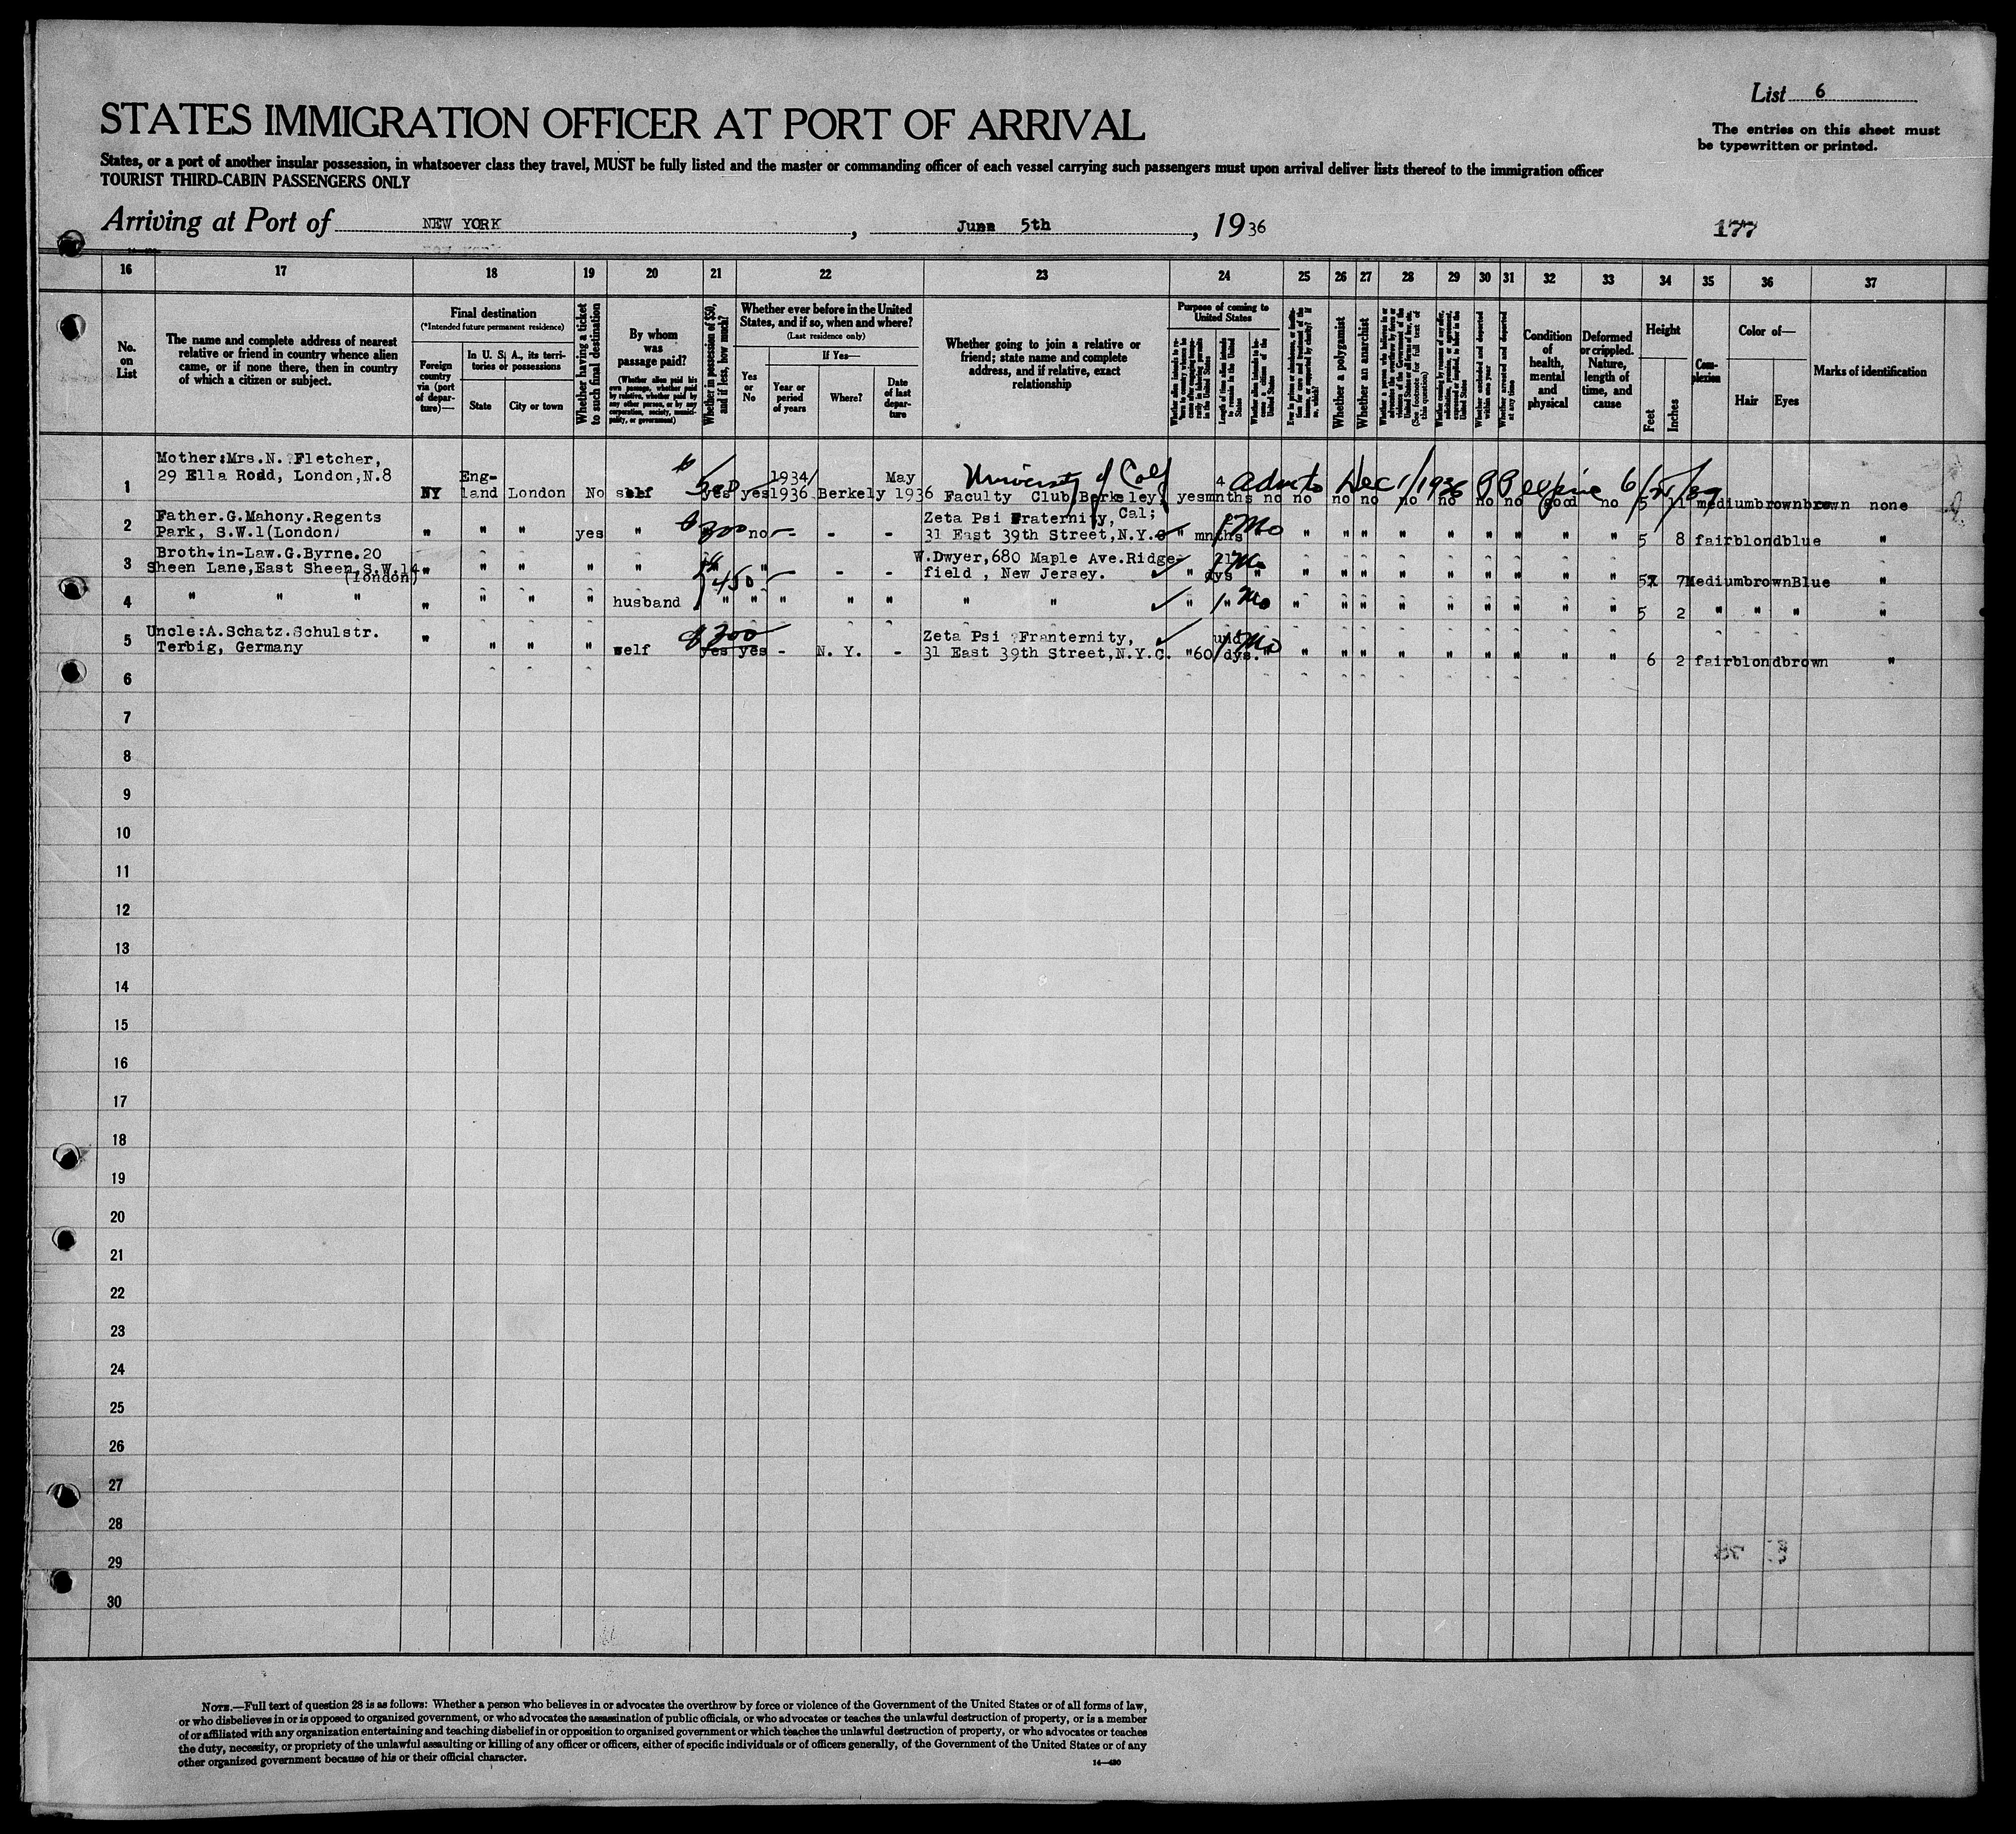 List 6
STATES IMMIGRATION OFFICER AT PORT OF ARRIVAL
The entries on this sheet must
be typewritten or printed.
States, or a port of another insular possession, in whatsoever class they travel, MUST be fully listed and the master or commanding officer of each vessel carrying such passengers must upon arrival deliver lists thereof to the immigration officer
TOURIST THIRD-CABIN PASSENGERS ONLY
Arriving at Port of NEW YORK, June 5th, 1936
177
16 17 18 19 20 21 22 23 24 25 26 27 28 29 30 31 32 33 34 35 36 37
No.
on
List
The name and complete address of nearest
relative or friend in country whence alien
came, or if none there, then in country
of which a citizen or subject.
Final destination
(*Intended future permanent residence)
Foreign
country
via (port
of depar-
ture)—
In U. S. A., its terri-
tories or possessions
State
City or town
Whether having a ticket
to such final destination
By whom
was
passage paid?
(Whether alien paid his
own passage, whether paid
by relative, whether paid by
any other person, or by any
corporation, society, munici-
pality, or government)
Whether in possession of $50,
and if less, how much?
Whether ever before in the United
States, and if so, when and where?
(Last residence only)
Yes
or
No
If Yes—
Year or
period
of years
Where?
Date
of last
depar-
ture
Whether going to join a relative or
friend; state name and complete
address, and if relative, exact
relationship
Purpose of coming to
United States
Length of time alien intends
to remain in the United
States
Whether alien intends to be-
come a citizen of the
United States
Whether a polygamist
Whether an anarchist
Whether excluded and deported
within one year
Whether arrested and deported
at any time
Condition
of
health,
mental
and
physical
Deformed
or crippled.
Nature,
length of
time, and
cause
Height
Feet
Inches
Com-
plexion
Color of—
Hair
Eyes
Marks of identification
Mother:Mrs.N. Fletcher,
1 29 Ella Road, London,N.8 NY Eng-
land London No self $500 yes yes 1934/
1936 Berkely May
1936 University of Calf
Faculty Club, Berkeley, yes 4
mnths no no no no no no no no good no 5 11 medium brown brown none
Admto Dec 1/1936
Cal;
2 Father.G.Mahony.Regents
Park, S.W.1(London) " " " yes " $300 no - - - Zeta Psi Fraternity,
31 East 39th Street,N.Y.C " mnths 1 Mo " " " " " " " " " " 5 8 fair blond blue "
3 Broth.in-Law.G.Byrne.20
Sheen Lane,East Sheen,S.W.14
(London) " " " " " " " - - W.Dwyer,680 Maple Ave.Ridge-
field , New Jersey. " 21
dys " " " " " " " " " " " 5 7 Medium brown Blue "
450
4 " " " " " " " husband " " " " " " " " 1 Mo " " " " " " " " " 5 2 " " " "
5 Uncle:A.Schatz.Schulstr.
Terbig, Germany " " " " self $300 yes yes - N. Y. - Zeta Psi Franternity,
31 East 39th Street,N.Y.C. " und
60 dys. " 1 Mo " " " " " " " " " 6 2 fair blond brown "
6
7
8
9
10
11
12
13
14
15
16
17
18
19
20
21
22
23
24
25
26
27
28
29
30
NOTE.—Full text of question 28 is as follows: Whether a person who believes in or advocates the overthrow by force or violence of the Government of the United States or of all forms of law,
or who disbelieves in or is opposed to organized government, or who advocates the assassination of public officials, or who advocates or teaches the unlawful destruction of property, or is a member
of or affiliated with any organization entertaining and teaching disbelief in or opposition to organized government or which teaches the unlawful destruction of property, or who advocates or teaches
the duty, necessity, or propriety of the unlawful assaulting or killing of any officer or officers, either of specific individuals or of officers generally, of the Government of the United States or of any
other organized government because of his or their official character.
14—480